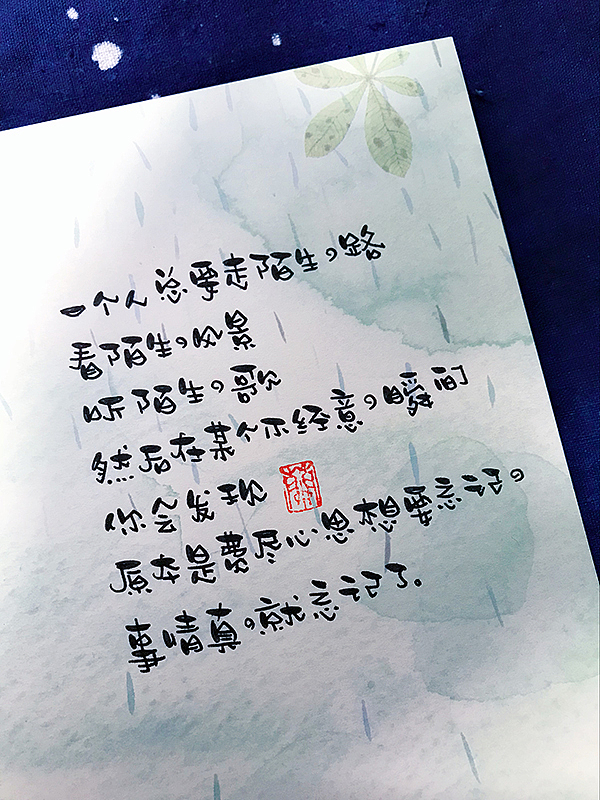 一个人总要走陌生的路
看陌生的风景
听陌生的歌
然后在某个不经意的瞬间
你会发现
原本是费尽心思想要忘记的
事情真的就忘记了。